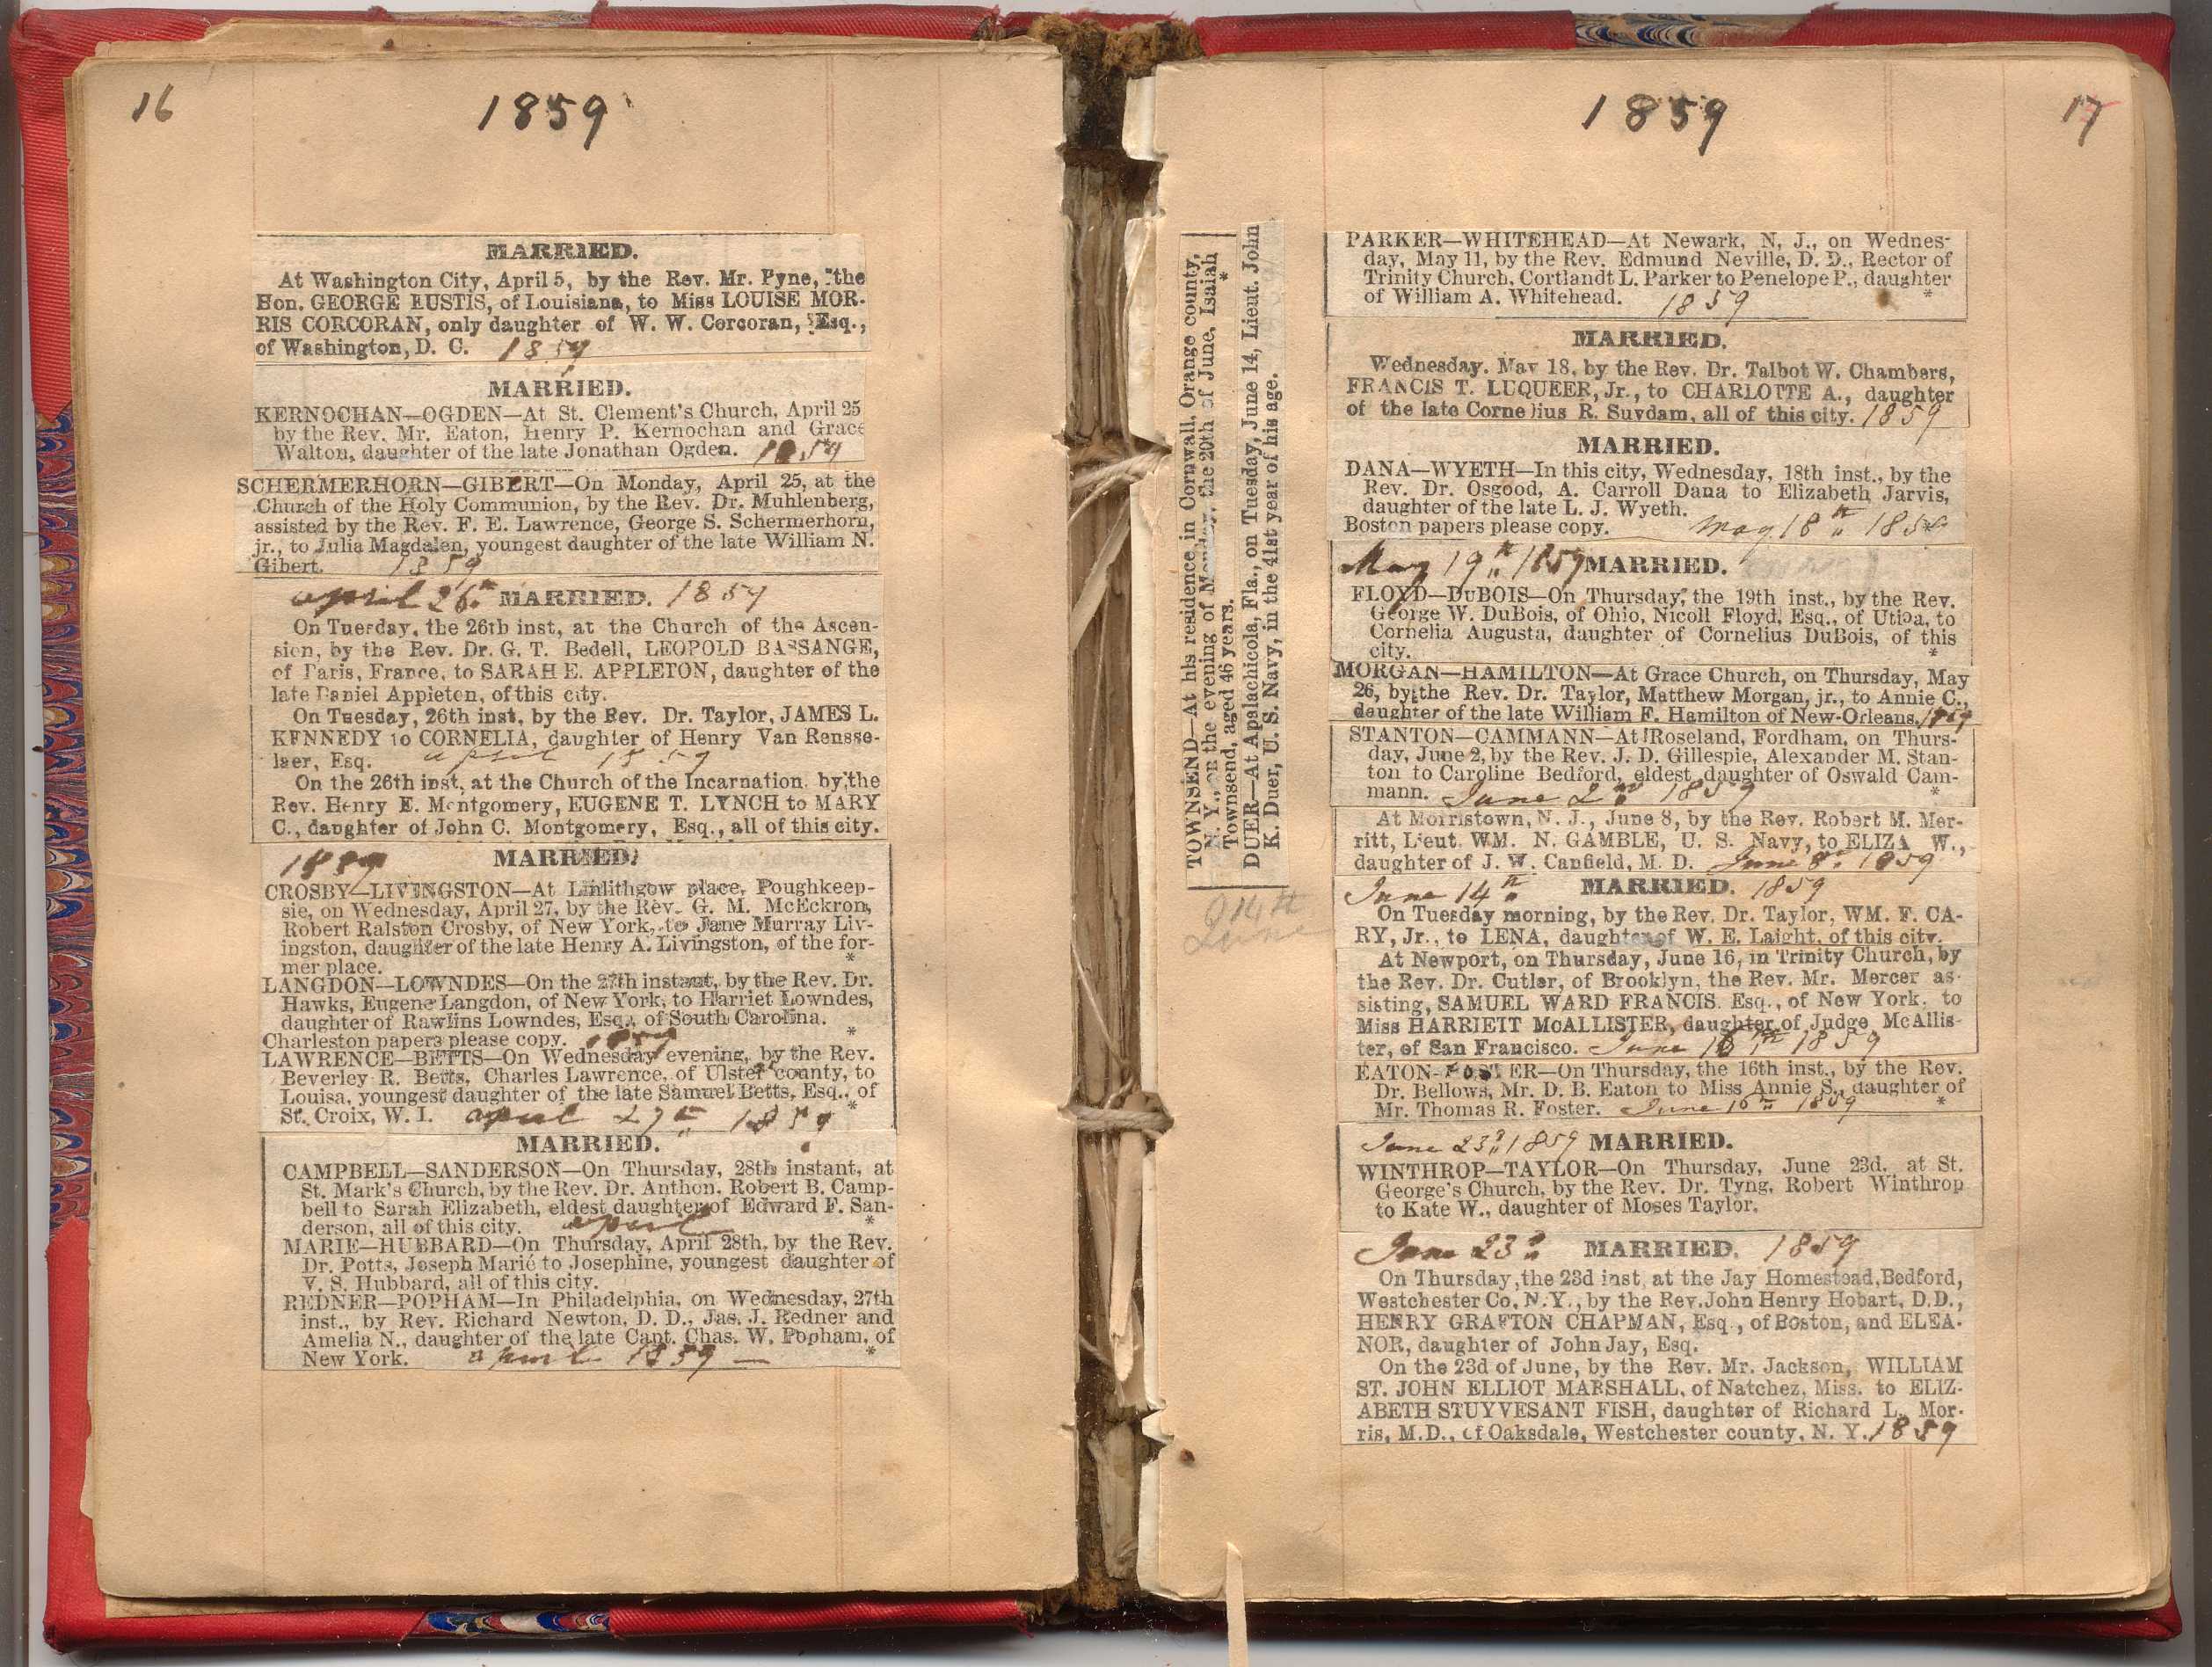 16
1859
MARRIED.
At Washington City, April 5, by the Rev. Mr. Pyne, the
Hon. GEORGE EUSTIS, of Louisiana, to Miss LOUISE MOR-
RIS CORCORAN, only daughter of W. W. Corcoran, Esq.,
of Washington, D. C. 1859
MARRIED.
KERNOCHAN—OGDEN—At St. Clement's Church, April 25
by the Rev. Mr. Eaton, Henry P. Kernochan and Grace
Walton, daughter of the late Jonathan Ogden. 1859
SCHERMERHORN—GIBERT—On Monday, April 25, at the
Church of the Holy Communion, by the Rev. Dr. Muhlenberg,
assisted by the Rev. F. E. Lawrence, George S. Schermerhorn,
jr., to Julia Magdalen, youngest daughter of the late William N.
Gibert. 1859
april 26th MARRIED. 1859
On Tuesday, the 26th inst, at the Church of the Ascen-
sion, by the Rev. Dr. G. T. Bedell, LEOPOLD BASSANGE,
of Paris, France, to SARAH E. APPLETON, daughter of the
late Daniel Appleton, of this city.
On Tuesday, 26th inst, by the Rev. Dr. Taylor, JAMES L.
KENNEDY to CORNELIA, daughter of Henry Van Rensse-
laer, Esq. april 1859
On the 26th inst, at the Church of the Incarnation, by the
Rev. Henry E. Montgomery, EUGENE T. LYNCH to MARY
C., daughter of John C. Montgomery, Esq., all of this city.
1859 MARRIED.
CROSBY—LIVINGSTON—At Linlithgow place, Poughkeep-
sie, on Wednesday, April 27, by the Rev. G. M. McEckron,
Robert Ralston Crosby, of New York, to Jane Murray Liv-
ingston, daughter of the late Henry A. Livingston, of the for-
mer place. *
LANGDON—LOWNDES—On the 27th instant, by the Rev. Dr.
Hawks, Eugene Langdon, of New York, to Harriet Lowndes,
daughter of Rawlins Lowndes, Esq., of South Carolina.
Charleston papers please copy. 1859 *
LAWRENCE—BETTS—On Wednesday evening, by the Rev.
Beverley R. Betts, Charles Lawrence, of Ulster county, to
Louisa, youngest daughter of the late Samuel Betts, Esq., of
St. Croix, W. I. april 27th 1859 *
MARRIED.
CAMPBELL—SANDERSON—On Thursday, 28th instant, at
St. Mark's Church, by the Rev. Dr. Anthon, Robert B. Camp-
bell to Sarah Elizabeth, eldest daughter of Edward F. San-
derson, all of this city. april *
MARIE—HUBBARD—On Thursday, April 28th, by the Rev.
Dr. Potts, Joseph Marié to Josephine, youngest daughter of
V. S. Hubbard, all of this city.
REDNER—POPHAM—In Philadelphia, on Wednesday, 27th
inst., by Rev. Richard Newton, D. D., Jas. J. Redner and
Amelia N., daughter of the late Capt. Chas. W. Popham, of
New York. april 1859 — *
1859
17
TOWNSEND—At his residence in Cornwall, Orange county,
N. Y., on the evening of Monday, the 20th of June, Isaiah
Townsend, aged 46 years. *
DUER—At Apalachicola, Fla., on Tuesday, June 14, Lieut. John
K. Duer, U. S. Navy, in the 41st year of his age.
14th
June
PARKER—WHITEHEAD—At Newark, N. J., on Wednes-
day, May 11, by the Rev. Edmund Neville, D. D., Rector of
Trinity Church, Cortlandt L. Parker to Penelope P., daughter
of William A. Whitehead. 1859 *
MARRIED.
Wednesday, May 18, by the Rev. Dr. Talbot W. Chambers,
FRANCIS T. LUQUEER, Jr., to CHARLOTTE A., daughter
of the late Cornelius R. Suydam, all of this city. 1859
MARRIED.
DANA—WYETH—In this city, Wednesday, 18th inst., by the
Rev. Dr. Osgood, A. Carroll Dana to Elizabeth Jarvis,
daughter of the late L. J. Wyeth.
Boston papers please copy. May 18th 1859
May 19th 1859 MARRIED.
FLOYD—DuBOIS—On Thursday, the 19th inst., by the Rev.
George W. DuBois, of Ohio, Nicoll Floyd, Esq., of Utica, to
Cornelia Augusta, daughter of Cornelius DuBois, of this
city. *
MORGAN—HAMILTON—At Grace Church, on Thursday, May
26, by the Rev. Dr. Taylor, Matthew Morgan, jr., to Annie C.,
daughter of the late William F. Hamilton of New-Orleans. 1859
STANTON—CAMMANN—At Roseland, Fordham, on Thurs-
day, June 2, by the Rev. J. D. Gillespie, Alexander M. Stan-
ton to Caroline Bedford, eldest daughter of Oswald Cam-
mann. June 2nd 1859 *
At Morristown, N. J., June 8, by the Rev. Robert M. Mer-
ritt, Lieut. WM. N. GAMBLE, U. S. Navy, to ELIZA W.,
daughter of J. W. Canfield, M. D. June 8th 1859
June 14th MARRIED. 1859
On Tuesday morning, by the Rev. Dr. Taylor, WM. F. CA-
RY, Jr., to LENA, daughter of W. E. Laight, of this city.
At Newport, on Thursday, June 16, in Trinity Church, by
the Rev. Dr. Cutler, of Brooklyn, the Rev. Mr. Mercer as-
sisting, SAMUEL WARD FRANCIS, Esq., of New York, to
Miss HARRIETT McALLISTER, daughter of Judge McAllis-
ter, of San Francisco. June 16th 1859
EATON-FOSTER—On Thursday, the 16th inst., by the Rev.
Dr. Bellows, Mr. D. B. Eaton to Miss Annie S., daughter of
Mr. Thomas R. Foster. June 16th 1859 *
June 23d 1859 MARRIED.
WINTHROP—TAYLOR—On Thursday, June 23d, at St.
George's Church, by the Rev. Dr. Tyng, Robert Winthrop
to Kate W., daughter of Moses Taylor.
June 23d MARRIED. 1859
On Thursday, the 23d inst, at the Jay Homestead, Bedford,
Westchester Co, N.Y., by the Rev. John Henry Hobart, D.D.,
HENRY GRAFTON CHAPMAN, Esq., of Boston, and ELEA-
NOR, daughter of John Jay, Esq.
On the 23d of June, by the Rev. Mr. Jackson, WILLIAM
ST. JOHN ELLIOT MARSHALL, of Natchez, Miss. to ELIZ-
ABETH STUYVESANT FISH, daughter of Richard L. Mor-
ris, M.D., of Oaksdale, Westchester county, N. Y. 1859